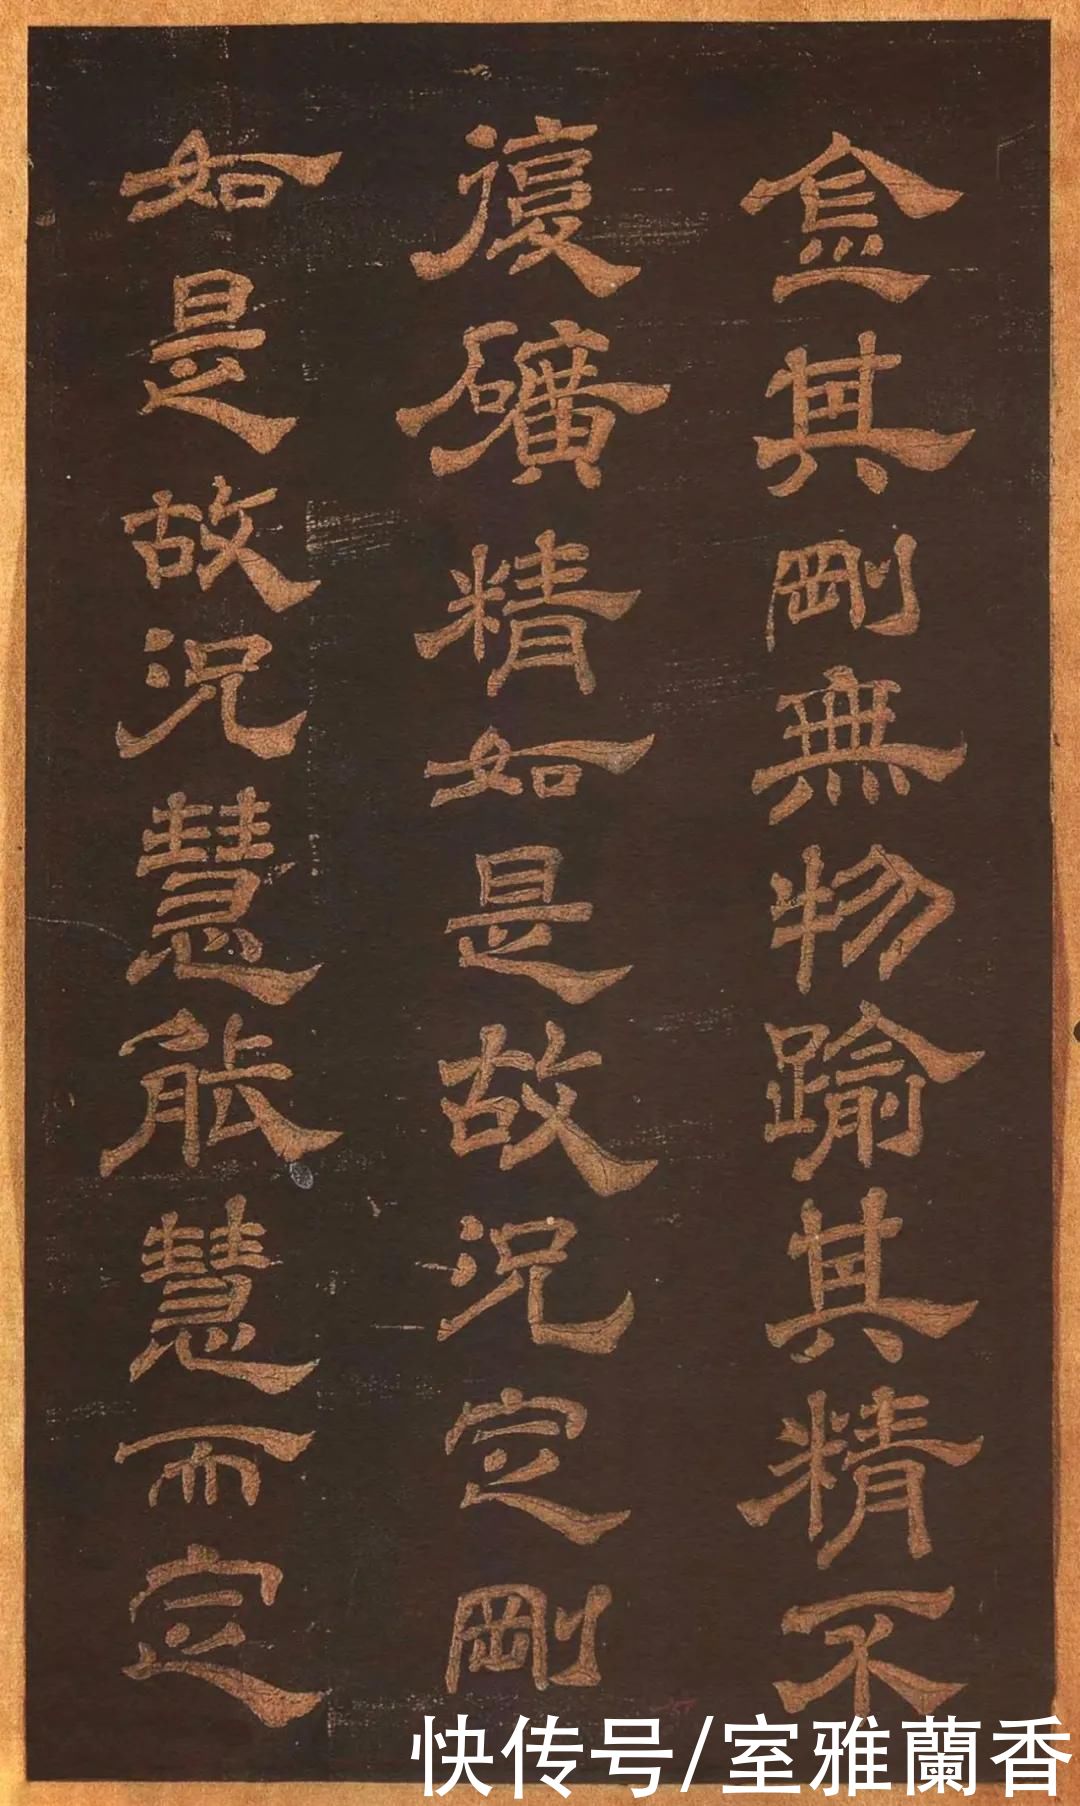 金其剛無物踰其精不
復礦精如是故況定剛
如是故況慧能慧而定
快传号/室雅蘭香